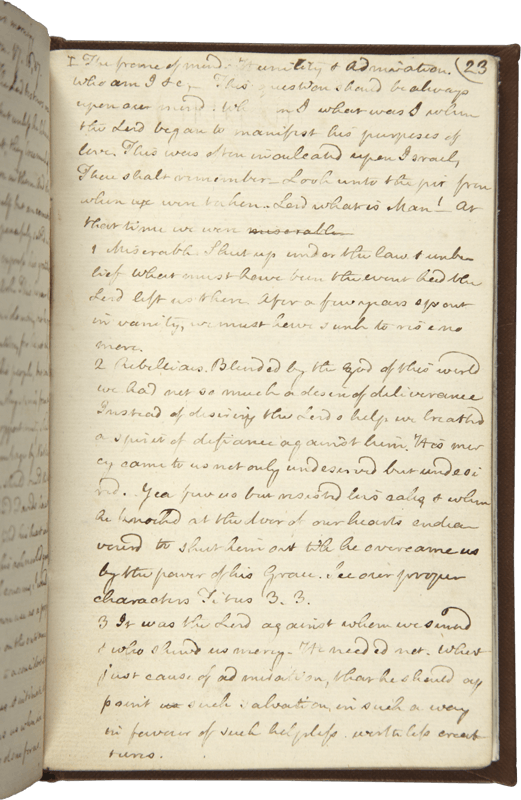 23
I The frame of mind. Humility & Admiration.
Who am I &c,- This question should be always
upon our mind. Wh n I what was I when
the Lord began to manifest his purposes of
love. This was often inculcated upon Israel,
Thou shalt remember_ Look unto the pit from
when we were taken. Lord what is Man! At
that time we were miserable
1 Miserable. Shut up under the law & unbe
lief what must have been the event had the
Lord left us then. After a few years spent
in vanity, we must have sunk to rise no
more.
2 Rebellious. Blinded by the god of this world
we had not so much a desire of deliverance
Instead of desiring the Lords help we breathed
a spirit of defiance against him. His mer
cy came to us not only undeserved but undesi
red. Yea few us but resisted his calls, & when
he knocked at the door of our hearts endea
vourd to shut him out till he overcame us
by the power of his Grace. See our proper
characters Titus 3. 3.
3 It was the Lord against whom we sinned
& who shewd us mercy. He needed not. What
just cause of admiration, that he should ap
point us such salvation, in such a way
in favour of such helpless worthless creat
tures.